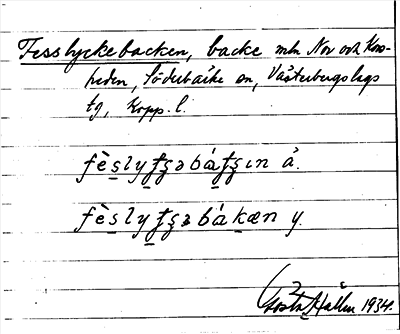 Fesslyckebacken, backe mln Nor och Kors-
heden, Söderbärke sn, Västerbergslags
tg, Kopp. l.
fès̲lyt̲ʂəbát̲ʂɩn å.
fès̲lyt̲ʂəbák̲æn y.
Gösta Hallin 1934.